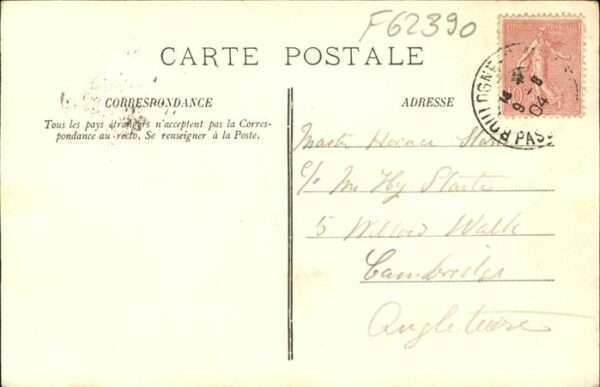 F62390
CARTE POSTALE
CORRESPONDANCE
Tous les pays étrangers n'acceptent pas la Corres-
pondance au recto, Se renseigner à la Poste.
ADRESSE
BOULOGNE
9 - 8
04
PAS
Master Horace
c/o Mr Hy
5 Willow Walk
Cambridge
Angleterre